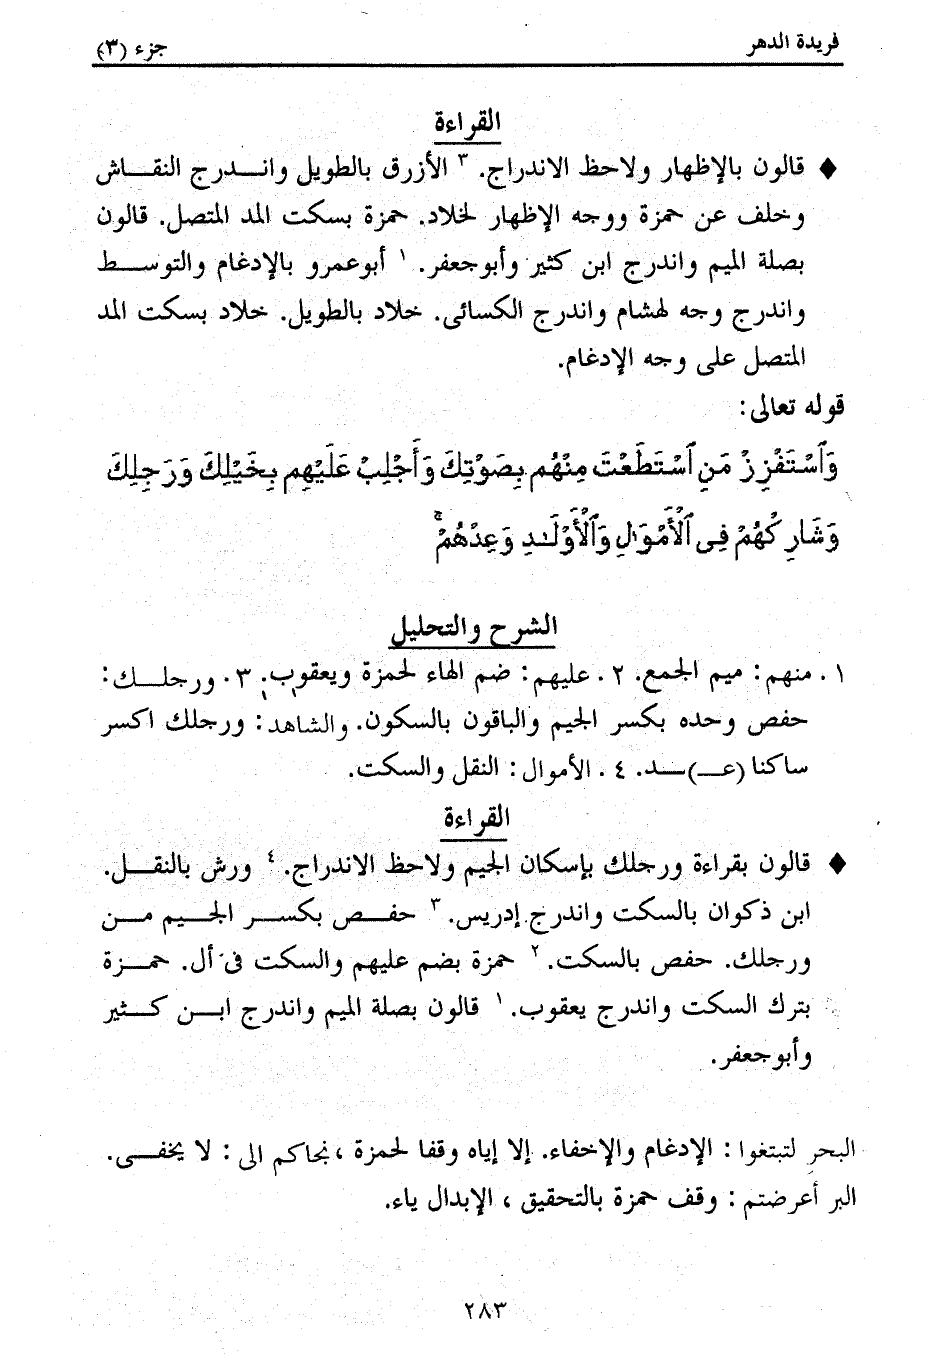 فريدة الدهر
جزء (٣)
القراءة
♦ قالون بالإظهار ولاحظ الاندراج. ٣ الأزرق بالطويل وانـــدرج النقـــاش
وخلف عن حمزة ووجه الإظهار لخلاد. حمزة بسكت المد المتصل. قالون
بصلة الميم واندرج ابن كثير وأبوجعفر. ١ أبوعمرو بالإدغام والتوســط
واندرج وجه لهشام واندرج الكسائى. خلاد بالطويل. خلاد بسكت المد
المتصل على وجه الإدغام.
قوله تعالى:
وَٱسْتَفْزِزْ مَنِ ٱسْتَطَعْتَ مِنْهُم بِصَوْتِكَ وَأَجْلِبْ عَلَيْهِم بِخَيْلِكَ وَرَجِلِكَ
وَشَارِكْهُمْ فِى ٱلْأَمْوَٰلِ وَٱلْأَوْلَـٰدِ وَعِدْهُمْ ۚ
الشرح والتحليل
١. منهم: ميم الجمع. ٢. عليهم: ضم الهاء لحمزة ويعقوب. ٣. ورجلــك:
حفص وحده بكسر الجيم والباقون بالسكون. والشاهد: ورجلك اكسر
ساكنا (عــ)ــد. ٤. الأموال: النقل والسكت.
القراءة
♦ قالون بقراءة ورجلك بإسكان الجيم ولاحظ الاندراج. ٤ ورش بالنقــل.
ابن ذكوان بالسكت واندرج إدريس. ٣ حفــص بكســر الجيــم مــن
ورجلك. حفص بالسكت. ٢ حمزة بضم عليهم والسكت فى أل. حمــزة
بترك السكت واندرج يعقوب. ١ قالون بصلة الميم واندرج ابــن كــثير
وأبوجعفر.
البحر لتبتغوا: الإدغام والإخفاء. إلا إياه وقفا لحمزة ، نجاكم الى: لا يخفــى.
البر أعرضتم: وقف حمزة بالتحقيق ، الإبدال ياء.
٢٨٣